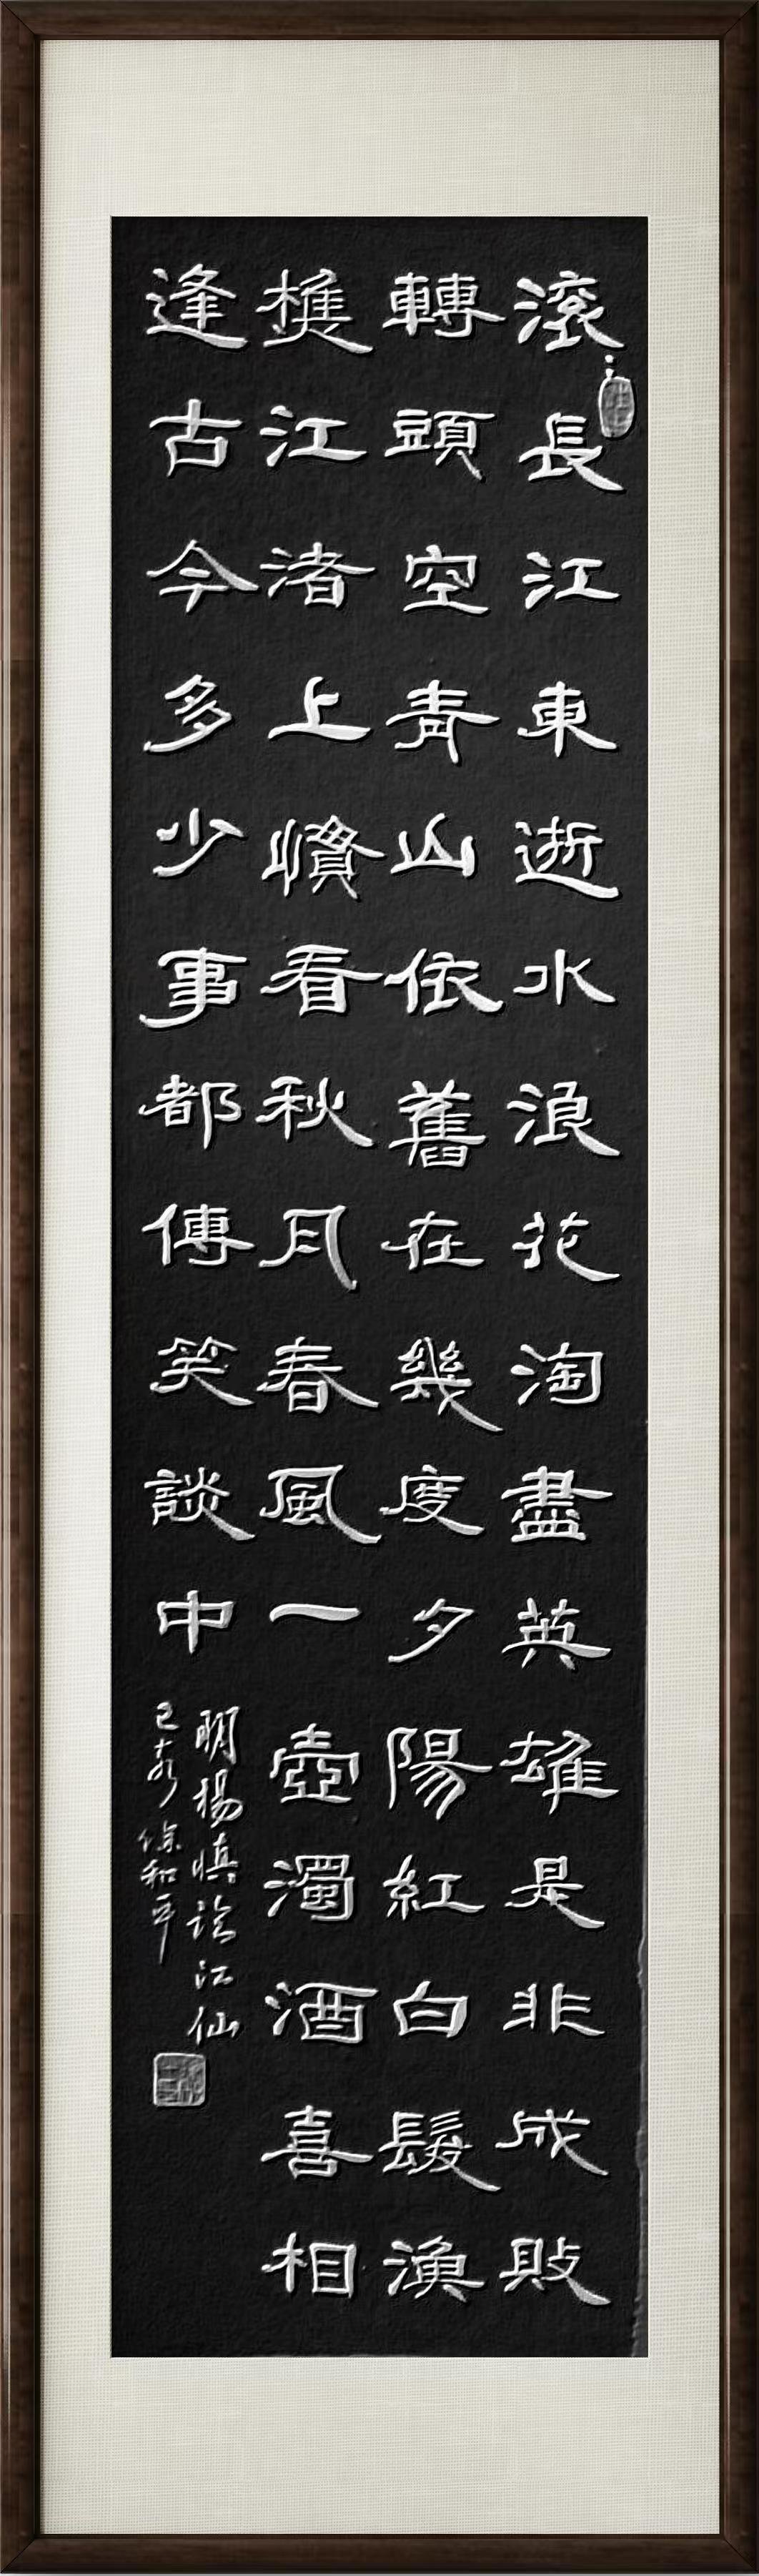 滾〻長江東逝水浪花淘盡英雄是非成敗
轉頭空青山依舊在幾度夕陽紅白髮漁
樵江渚上慣看秋月春風一壺濁酒喜相
逢古今多少事都傳笑談中
明楊慎臨江仙
己亥徐和平